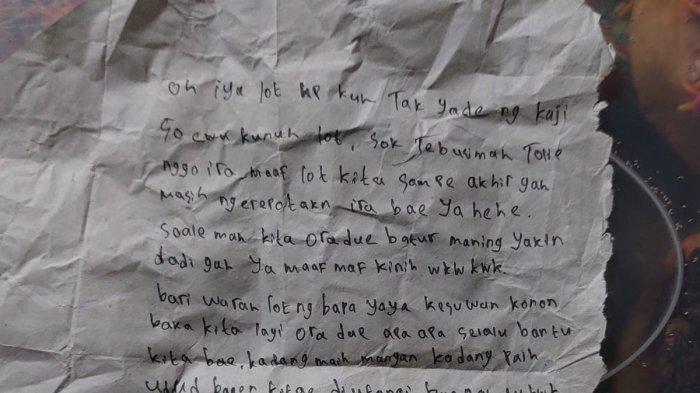 Oh iya lot HP kuh Tak yade ng kaji
50 ewu kunuh lot, Sok Tebusimah Tolie
nggo ira maaf lot kita sampe akhir gah
masih ngerepotakn ira bae ya hehe.
Soale mah kita ora due batur maning yakin
dadi gah ya maaf maf kinih wkwkwk.
bari warah lot ng bapa yaya kesuwan konon
baka kita lagi ora due apa apa selalu bantu
kita bae, kadang maih mangan kadang paih